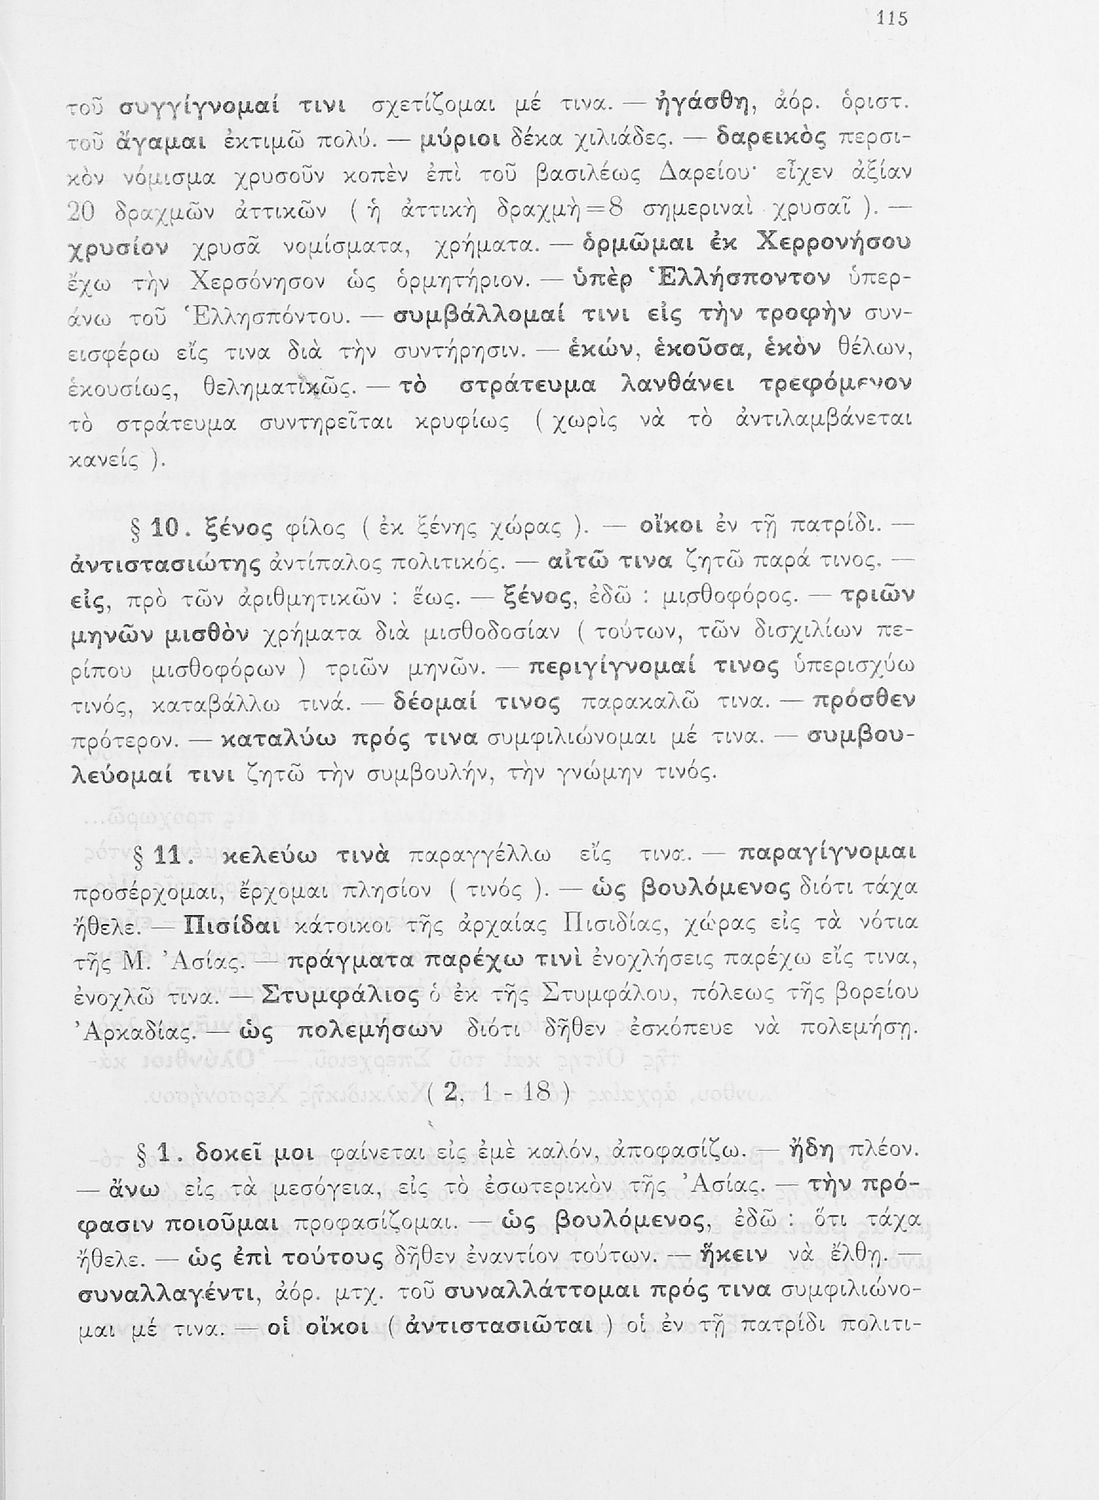 115
τοῦ συγγίγνομαί τινι σχετίζομαι μέ τινα. — ἠγάσθη, ἀόρ. ὁριστ.
τοῦ ἄγαμαι ἐκτιμῶ πολύ. — μύριοι δέκα χιλιάδες. — δαρεικὸς περσι-
κὸν νόμισμα χρυσοῦν κοπὲν ἐπὶ τοῦ βασιλέως Δαρείου· εἶχεν ἀξίαν
20 δραχμῶν ἀττικῶν ( ἡ ἀττικὴ δραχμὴ = 8 σημεριναὶ χρυσαῖ ). —
χρυσίον χρυσᾶ νομίσματα, χρήματα. — ὁρμῶμαι ἐκ Χερρονήσου
ἔχω τὴν Χερσόνησον ὡς ὁρμητήριον. — ὑπὲρ Ἑλλήσποντον ὑπερ-
άνω τοῦ Ἑλλησπόντου. — συμβάλλομαί τινι εἰς τὴν τροφὴν συν-
εισφέρω εἴς τινα διὰ τὴν συντήρησιν. — ἑκών, ἑκοῦσα, ἑκὸν θέλων,
ἑκουσίως, θεληματικῶς. — τὸ στράτευμα λανθάνει τρεφόμενον
τὸ στράτευμα συντηρεῖται κρυφίως ( χωρὶς νὰ τὸ ἀντιλαμβάνεται
κανείς ).
§ 10. ξένος φίλος ( ἐκ ξένης χώρας ). — οἴκοι ἐν τῇ πατρίδι. —
ἀντιστασιώτης ἀντίπαλος πολιτικός. — αἰτῶ τινα ζητῶ παρά τινος. —
εἰς, πρὸ τῶν ἀριθμητικῶν : ἕως. — ξένος, ἐδῶ : μισθοφόρος. — τριῶν
μηνῶν μισθὸν χρήματα διὰ μισθοδοσίαν ( τούτων, τῶν δισχιλίων πε-
ρίπου μισθοφόρων ) τριῶν μηνῶν. — περιγίγνομαί τινος ὑπερισχύω
τινός, καταβάλλω τινά. — δέομαί τινος παρακαλῶ τινα. — πρόσθεν
πρότερον. — καταλύω πρός τινα συμφιλιώνομαι μέ τινα. — συμβου-
λεύομαί τινι ζητῶ τὴν συμβουλήν, τὴν γνώμην τινός.
§ 11. κελεύω τινὰ παραγγέλλω εἴς τινα. — παραγίγνομαι
προσέρχομαι, ἔρχομαι πλησίον ( τινός ). — ὡς βουλόμενος διότι τάχα
ἤθελε. — Πισίδαι κάτοικοι τῆς ἀρχαίας Πισιδίας, χώρας εἰς τὰ νότια
τῆς Μ. Ἀσίας. — πράγματα παρέχω τινὶ ἐνοχλήσεις παρέχω εἴς τινα,
ἐνοχλῶ τινα. — Στυμφάλιος ὁ ἐκ τῆς Στυμφάλου, πόλεως τῆς βορείου
Ἀρκαδίας. — ὡς πολεμήσων διότι δῆθεν ἐσκόπευε νὰ πολεμήσῃ.
( 2, 1 - 18 )
§ 1. δοκεῖ μοι φαίνεται εἰς ἐμὲ καλόν, ἀποφασίζω. — ἤδη πλέον.
— ἄνω εἰς τὰ μεσόγεια, εἰς τὸ ἐσωτερικὸν τῆς Ἀσίας. — τὴν πρό-
φασιν ποιοῦμαι προφασίζομαι. — ὡς βουλόμενος, ἐδῶ : ὅτι τάχα
ἤθελε. — ὡς ἐπὶ τούτους δῆθεν ἐναντίον τούτων. — ἥκειν νὰ ἔλθῃ. —
συναλλαγέντι, ἀόρ. μτχ. τοῦ συναλλάττομαι πρός τινα συμφιλιώνο-
μαι μέ τινα. — οἱ οἴκοι ( ἀντιστασιῶται ) οἱ ἐν τῇ πατρίδι πολιτι-